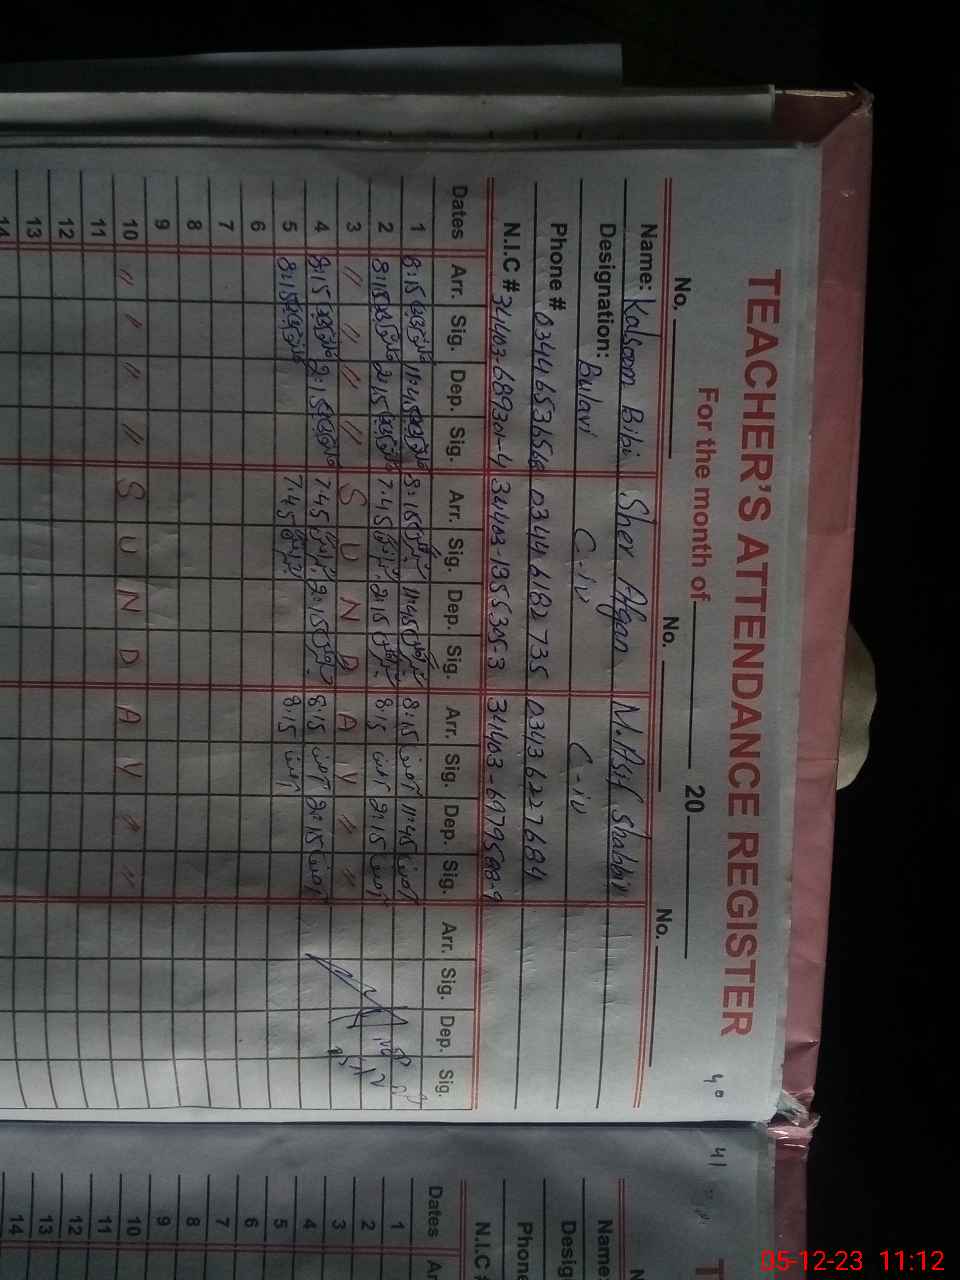 TEACHER'S ATTENDANCE REGISTER
For the month of 20
No. No. No.
Name: Kalsoom Bibi Sher Afgan M. Asif Shabbir
Designation: Bulavi C-iv C-iv
Phone # 03446182735 03436227684
N.I.C # 34403-1355305-3
Dates Arr. Sig. Dep. Sig. Arr. Sig. Dep. Sig. Arr. Sig. Dep. Sig. Arr. Sig. Dep. Sig.
1 8:15 11:45 8:15 11:45 8:15 آصف 11:45 آصف
2 8:15 2:15 7:45 2:15 8:15 آصف 2:15 آصف
3 " " " " S U N D A Y " "
4 8:15 2:15 7:45 2:15 8:15 آصف 2:15 آصف
5 8:15 7:45 8:15 آصف
6
7
8
9
10 " " " " S U N D A Y " "
11
12
13
14
41
T
N
Name:
Desig
Phone
N.I.C #
Dates Ar
1
2
3
4
5
6
7
8
9
10
11
12
13
14
05-12-23 11:12